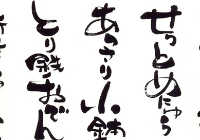 せっとめにゅう
あっさり小鍋
とり鍋おでん